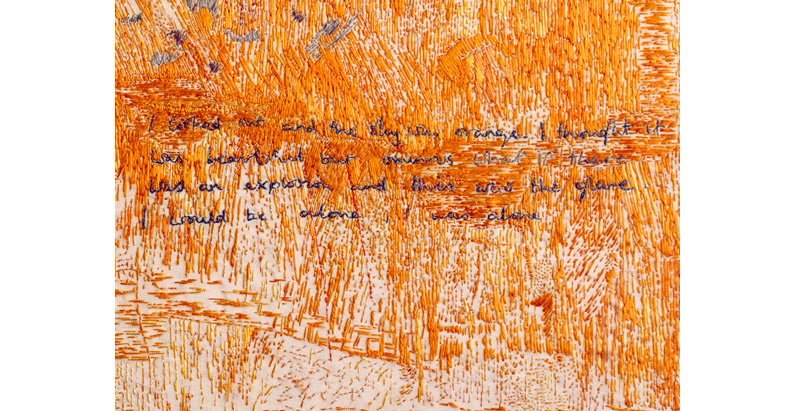 I looked out and the sky was orange. I thought it
was beautiful but ominous what if there
was an explosion and this was the glare.
I would be alone, I was alone